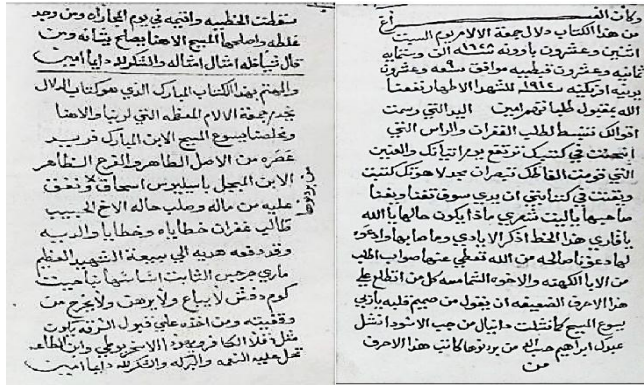 وكان الفراغ
من هذا الكتاب دلال جمعة الالام يوم السبت
اثنين وعشرون بأوونه الف وستمايه
ثمانيه وعشرون قبطيه موافق تسعه وعشرون
يونيه افرنكيه للشهدا الاطهار نفعنا
الله بمقبول طلباتهم امين اليد التي رسمت
اقوالك تنبسط لطلب الغفران والراس التي
انحنت في كنيستك ترتفع يوم اتيانك والعينين
التي لالفاظك تبصران مجد لاهوتك كتبت
وبقيت في كتابتي ان يدي سوف تفنا ويفنا
صاحبها ياليت شعري ماذا يكون حالها يا الله
يا قاري هذا الخط اذكر الايادي وصاحبها وادعوه
لها دعوة صالحه من الله تغطي عنها صواب الطلب
من الابا الكهنه والاخوه الشمامسه كل من اطلع علي
هذا الاحرف الضعيفه ان يقول من صميم قلبه ياربي
يسوع المسيح كما نشلت دانيال من جب الاسود انشل
عبدك ابراهيم من بردنوها كاتب هذا الاحرف
من
سقطت الخطيه واقيمه في يوم المجازاه ومن وجد
غلطه واصلحها المسيح الاهنا يصلح بشانه ومن
قال شيا فله امثال امثاله والشكر لله دايما امين
والمهتم بهذا الكتاب المبارك الذي هو كتاب دلال
يخدم جمعة الالام المعظمه التي لربنا والاهنا
ومخلصنا يسوع المسيح الابن المبارك فريد
عصره من الاصل الطاهر والفرع الظاهر
الابن المبجل باسيليوس اسحاق ونفق
عليه من ماله وصلب حاله الاخ الحبيب
من بردنوها
طالب غفران خطاياه وخطايا والديه
وقد وقفه هديه الي بيعة الشهيد العظيم
ماري جرجس الثابت اساسها بناحية
كوم دفش لا يباع ولا يرهن ولا يخرج من
وقفيته ومن اخذه علي قبول السرقه يكون
مثل الكافر ويهودا الاسخريوطي وابن الطاعه
تحل عليه النعمه والبركه والشكر لله دايما امين